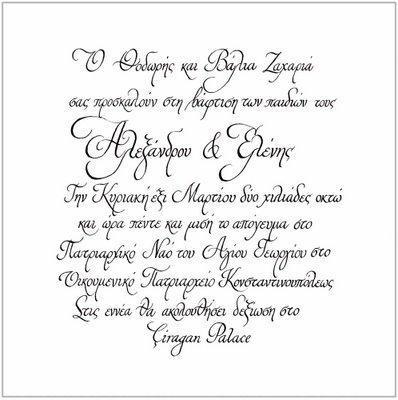 Ο Θοδωρής και Βάλια Ζαχαριά
σας προσκαλούν στη βάφτιση των παιδιών τους
Αλεξάνδρου & Ελένης
Την Κυριακή έξι Μαρτίου δύο χιλιάδες οκτώ
και ώρα πέντε και μισή το απόγευμα στο
Πατριαρχικό Ναό του Αγίου Γεωργίου στο
Οικουμενικό Πατριαρχείο Κονσταντινουπόλεως
Στις εννέα θα ακολουθήσει δεξίωση στο
Çiragan Palace